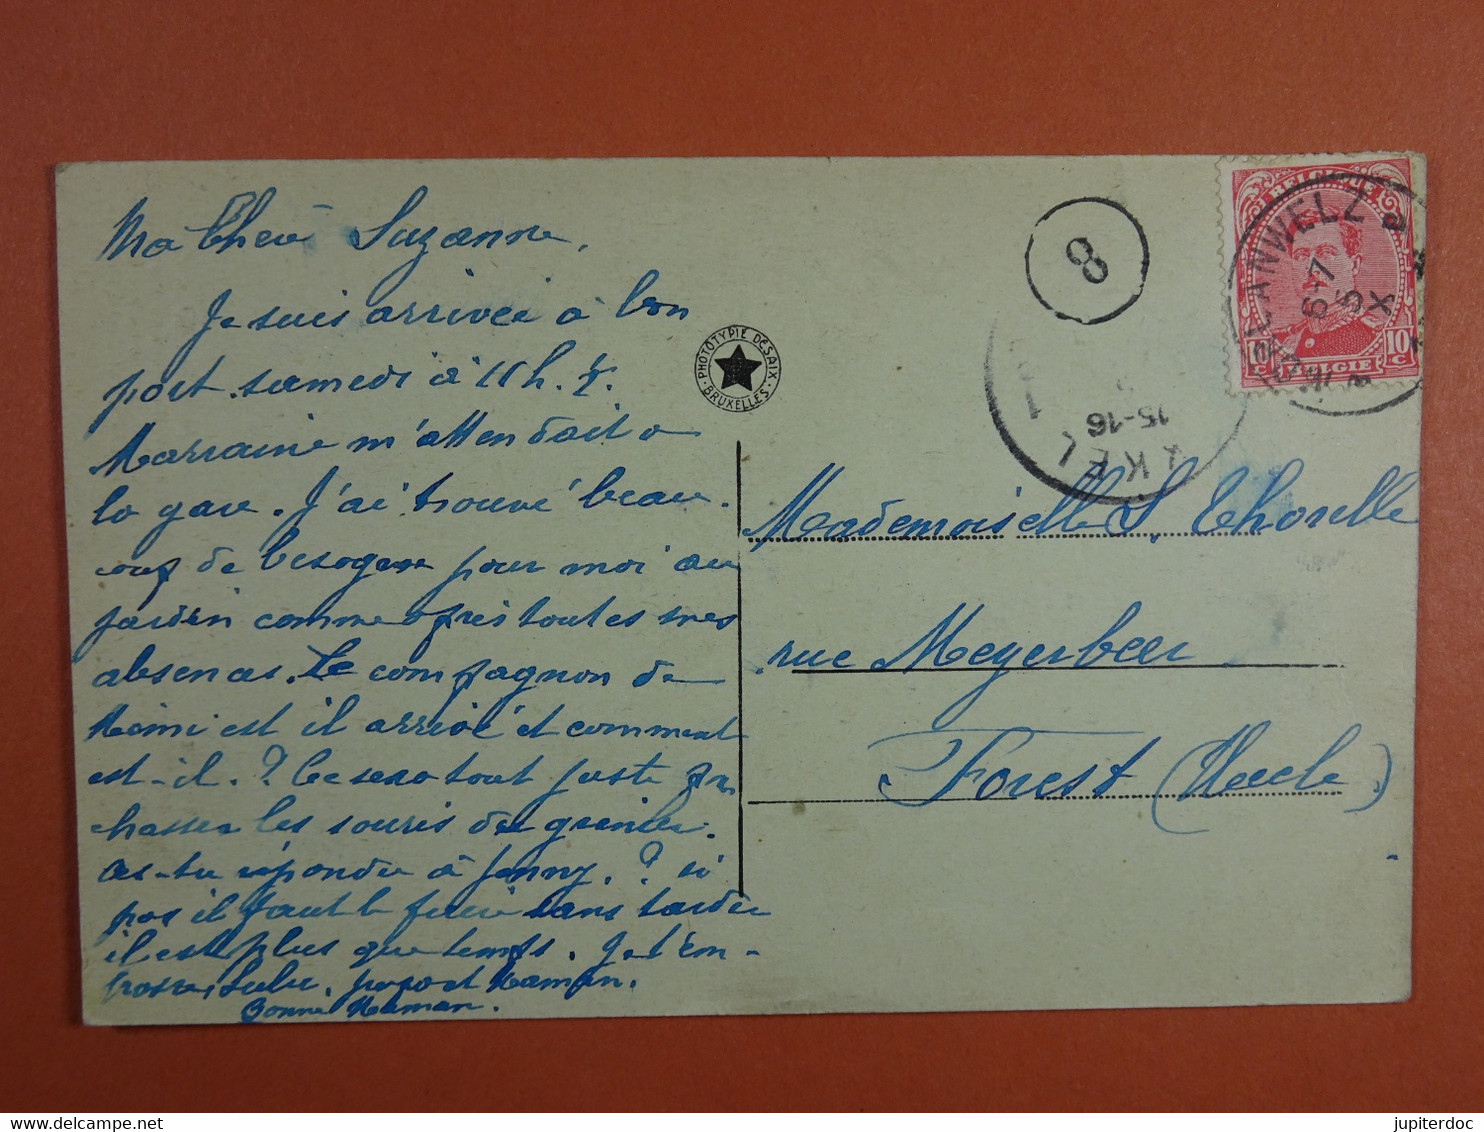 Ma Chère Suzanne,
Je suis arrivée à bon
port samedi à 11 h. ¼.
Marraine m'attendait a
la gare. J'ai trouvé beau-
coup de besogne pour moi au
jardin comme après toutes mes
absences. Le compagnon de
est il arrivé et comment
est-il. ? Ce sera tout juste pr
chasser les souris du grenier.
as-tu répondu à Jenny. ? si
pas il faut le faire sans tarder
il est plus que temps. Je t'em-
brasse, papa et Maman.
Bonne Maman.
PHOTOTYPIE DESAIX
BRUXELLES
8
BELGIQUE
10 C
BELGIE
6-7
5
X
15-16
KEL
1
Mademoiselle S. Thorelle
rue Meyerbeer
Forest (Uccle)
delcampe.net
jupiterdoc